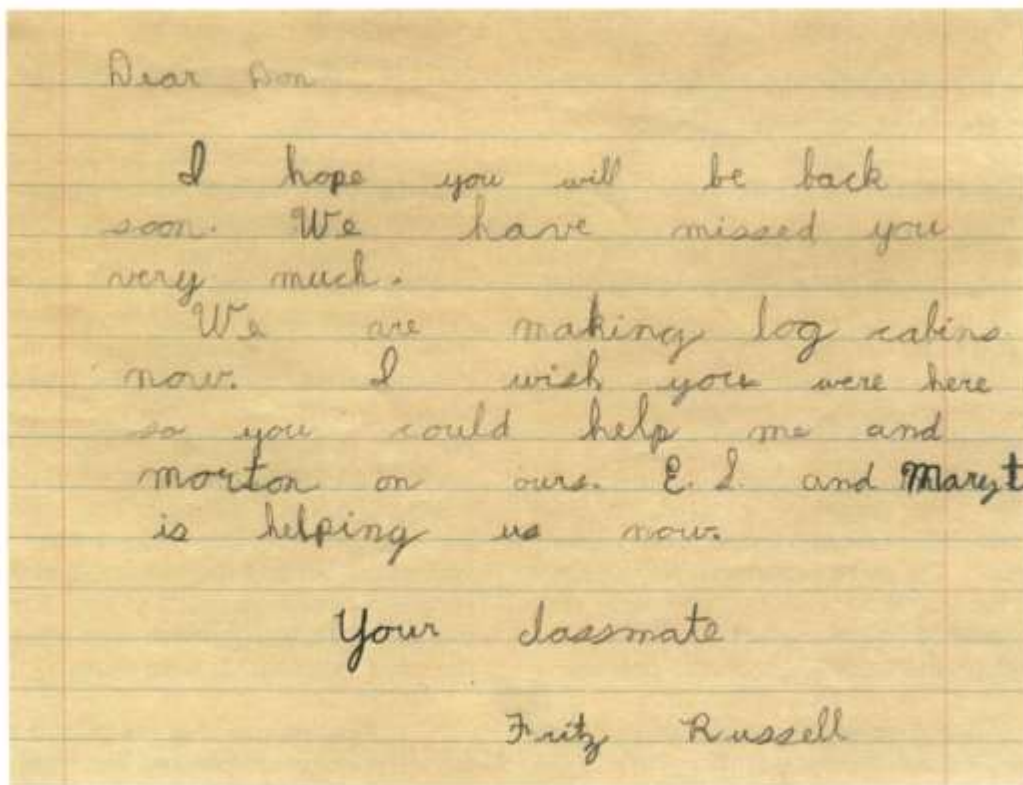 Dear Don
I hope you will be back
soon. We have missed you
very much.
We are making log cabins
now. I wish you were here
so you could help me and
morton on ours. E. L. and Mary t
is helping us now.
Your classmate
Fritz Russell